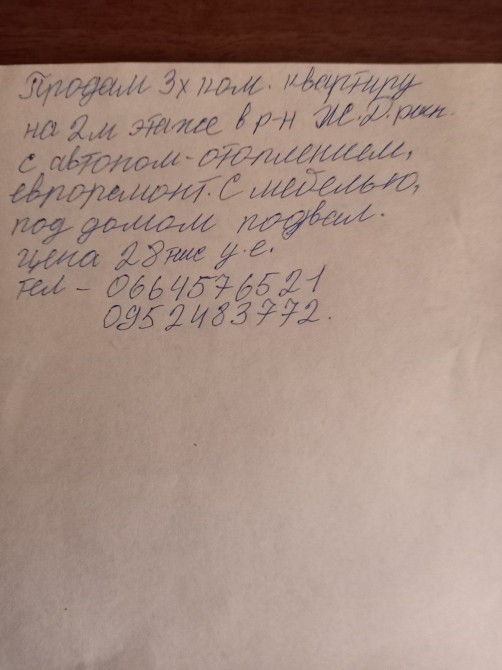 Продам 3х ком. квартиру
на 2м этаже в р-н Ж.Д.
с автоном-отоплением,
евроремонт. С мебелью,
под домом подвал.
цена 28тис у.е.
тел - 0664576521
0952483772.